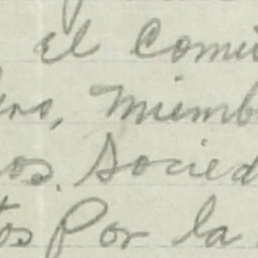 el Comi
ro, miemb
os. Socied
tos Por la